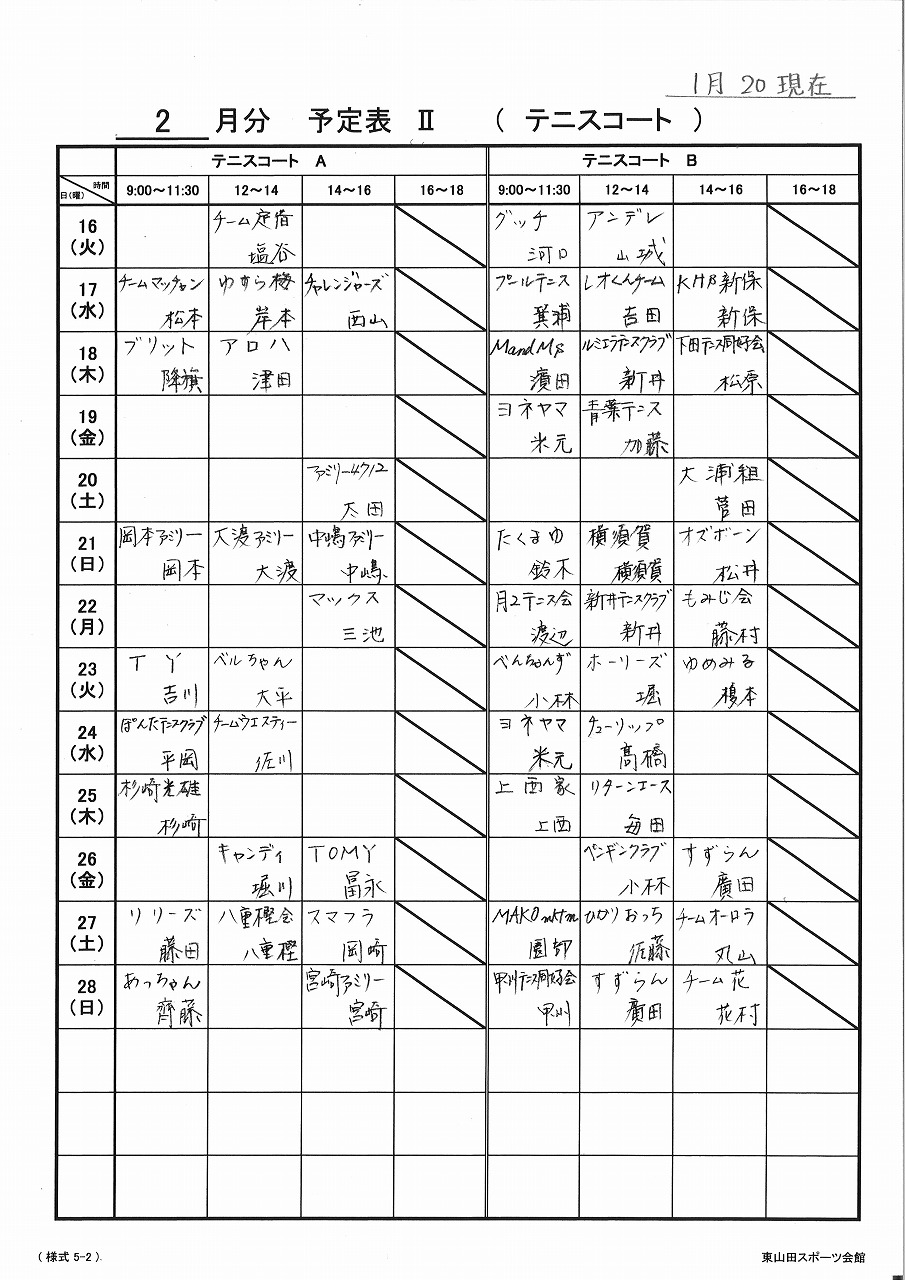 1月 20 現在
2 月分 予定表 Ⅱ ( テニスコート )
テニスコート A テニスコート B
時間
日(曜) 9:00～11:30 12～14 14～16 16～18 9:00～11:30 12～14 14～16 16～18
16 チーム定借 グッチ アンデレ
(火) 塩谷 河口 山城
17 チームマッチョン ゆすら梅 チャレンジャーズ プールテニス レオくんチーム KHB新保
(水) 松本 岸本 西山 箕浦 吉田 新保
18 ブリット アロハ MandMs ルミエラテニスクラブ 下田テニス同好会
(木) 降旗 津田 濱田 新井 松原
19 ヨネヤマ 青葉テニス
(金) 米元 加藤
20 ファミリー4712 大浦組
(土) 太田 菅田
21 岡本ファミリー 大渡ファミリー 中嶋ファミリー たくまゆ 横須賀 オズボーン
(日) 岡本 大渡 中嶋 鈴木 横須賀 松井
22 マックス 月2テニス会 新井テニスクラブ もみじ会
(月) 三池 渡辺 新井 藤村
23 TY ベルちゃん べんちゃんず ホーリーズ ゆめみる
(火) 吉川 大平 小林 堀 榎本
24 ぽんたテニスクラブ チームウエスティー ヨネヤマ チューリップ
(水) 平岡 佐川 米元 髙橋
25 杉崎光雄 上西家 リターンエース
(木) 杉崎 上西 毎田
26 キャンディ TOMY ペンギンクラブ すずらん
(金) 堀川 冨永 小林 廣田
27 リリーズ 八重樫会 スマフラ MAKOnktm ひかりおっち チームオーロラ
(土) 藤田 八重樫 岡崎 園部 佐藤 丸山
28 あっちゃん 宮崎ファミリー 甲州テニス同好会 すずらん チーム花
(日) 齊藤 宮崎 甲州 廣田 花村
(様式 5-2) 東山田スポーツ会館